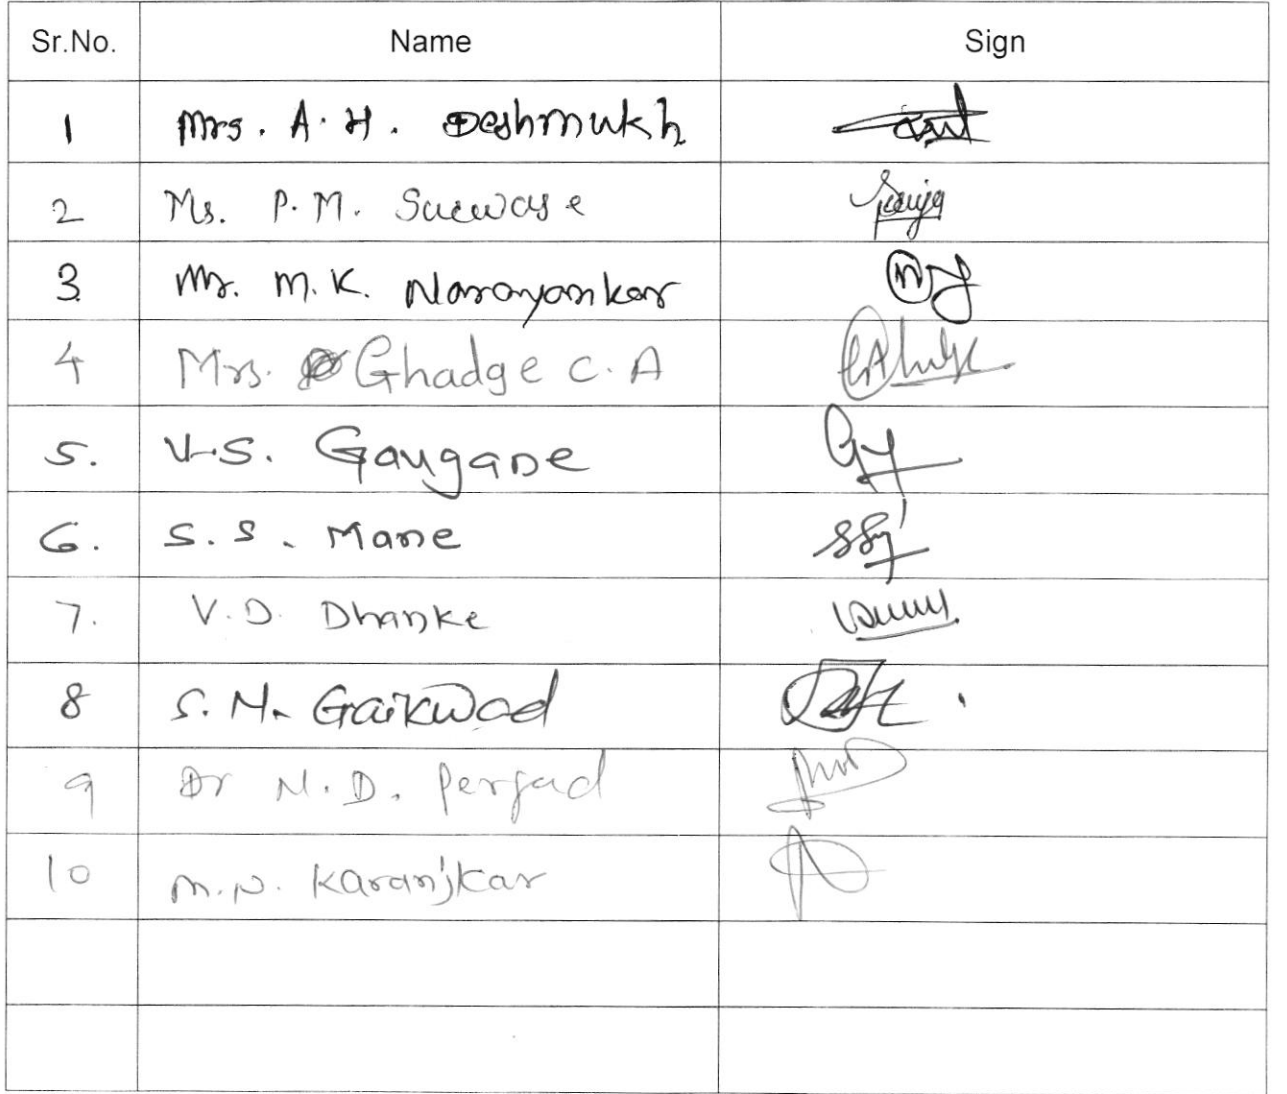 Sr.No. Name Sign
1 Mrs. A. H. Deshmukh
2 Ms. P. M. Surwase
3 Mr. M. K. Narayankar
4 Mrs. Ghadge C. A
5. V.S. Gaugane
6. S. S. Mane
7. V. D. Dhanke
8 S. M. Gaikwad
9 Dr N. D. Pergad
10 M. N. Karanjkar